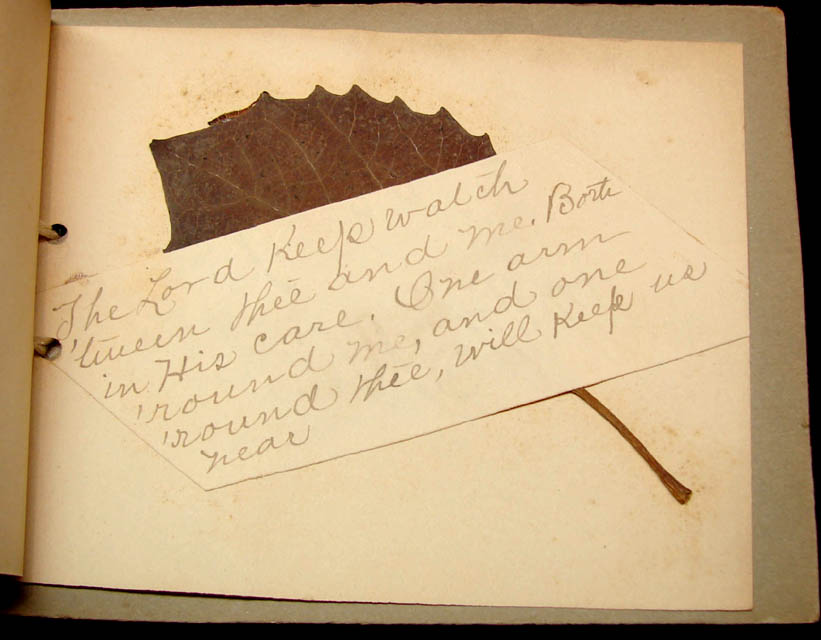 The Lord Keep watch
'tween thee and me. Both
in His care. One arm
'round me, and one
'round thee, will Keep us
near